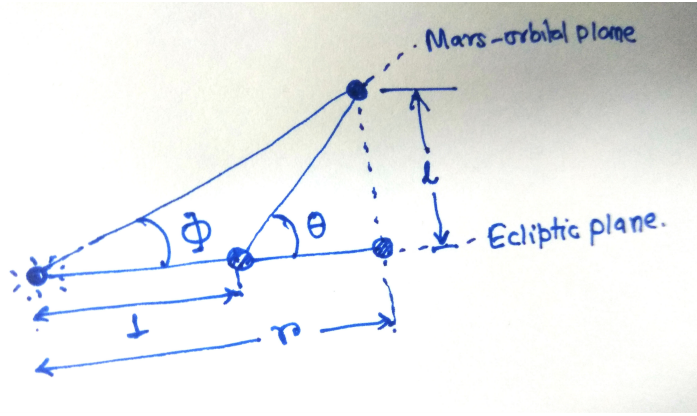 Mars-orbital plane
l
Φ
θ
Ecliptic plane.
1
r